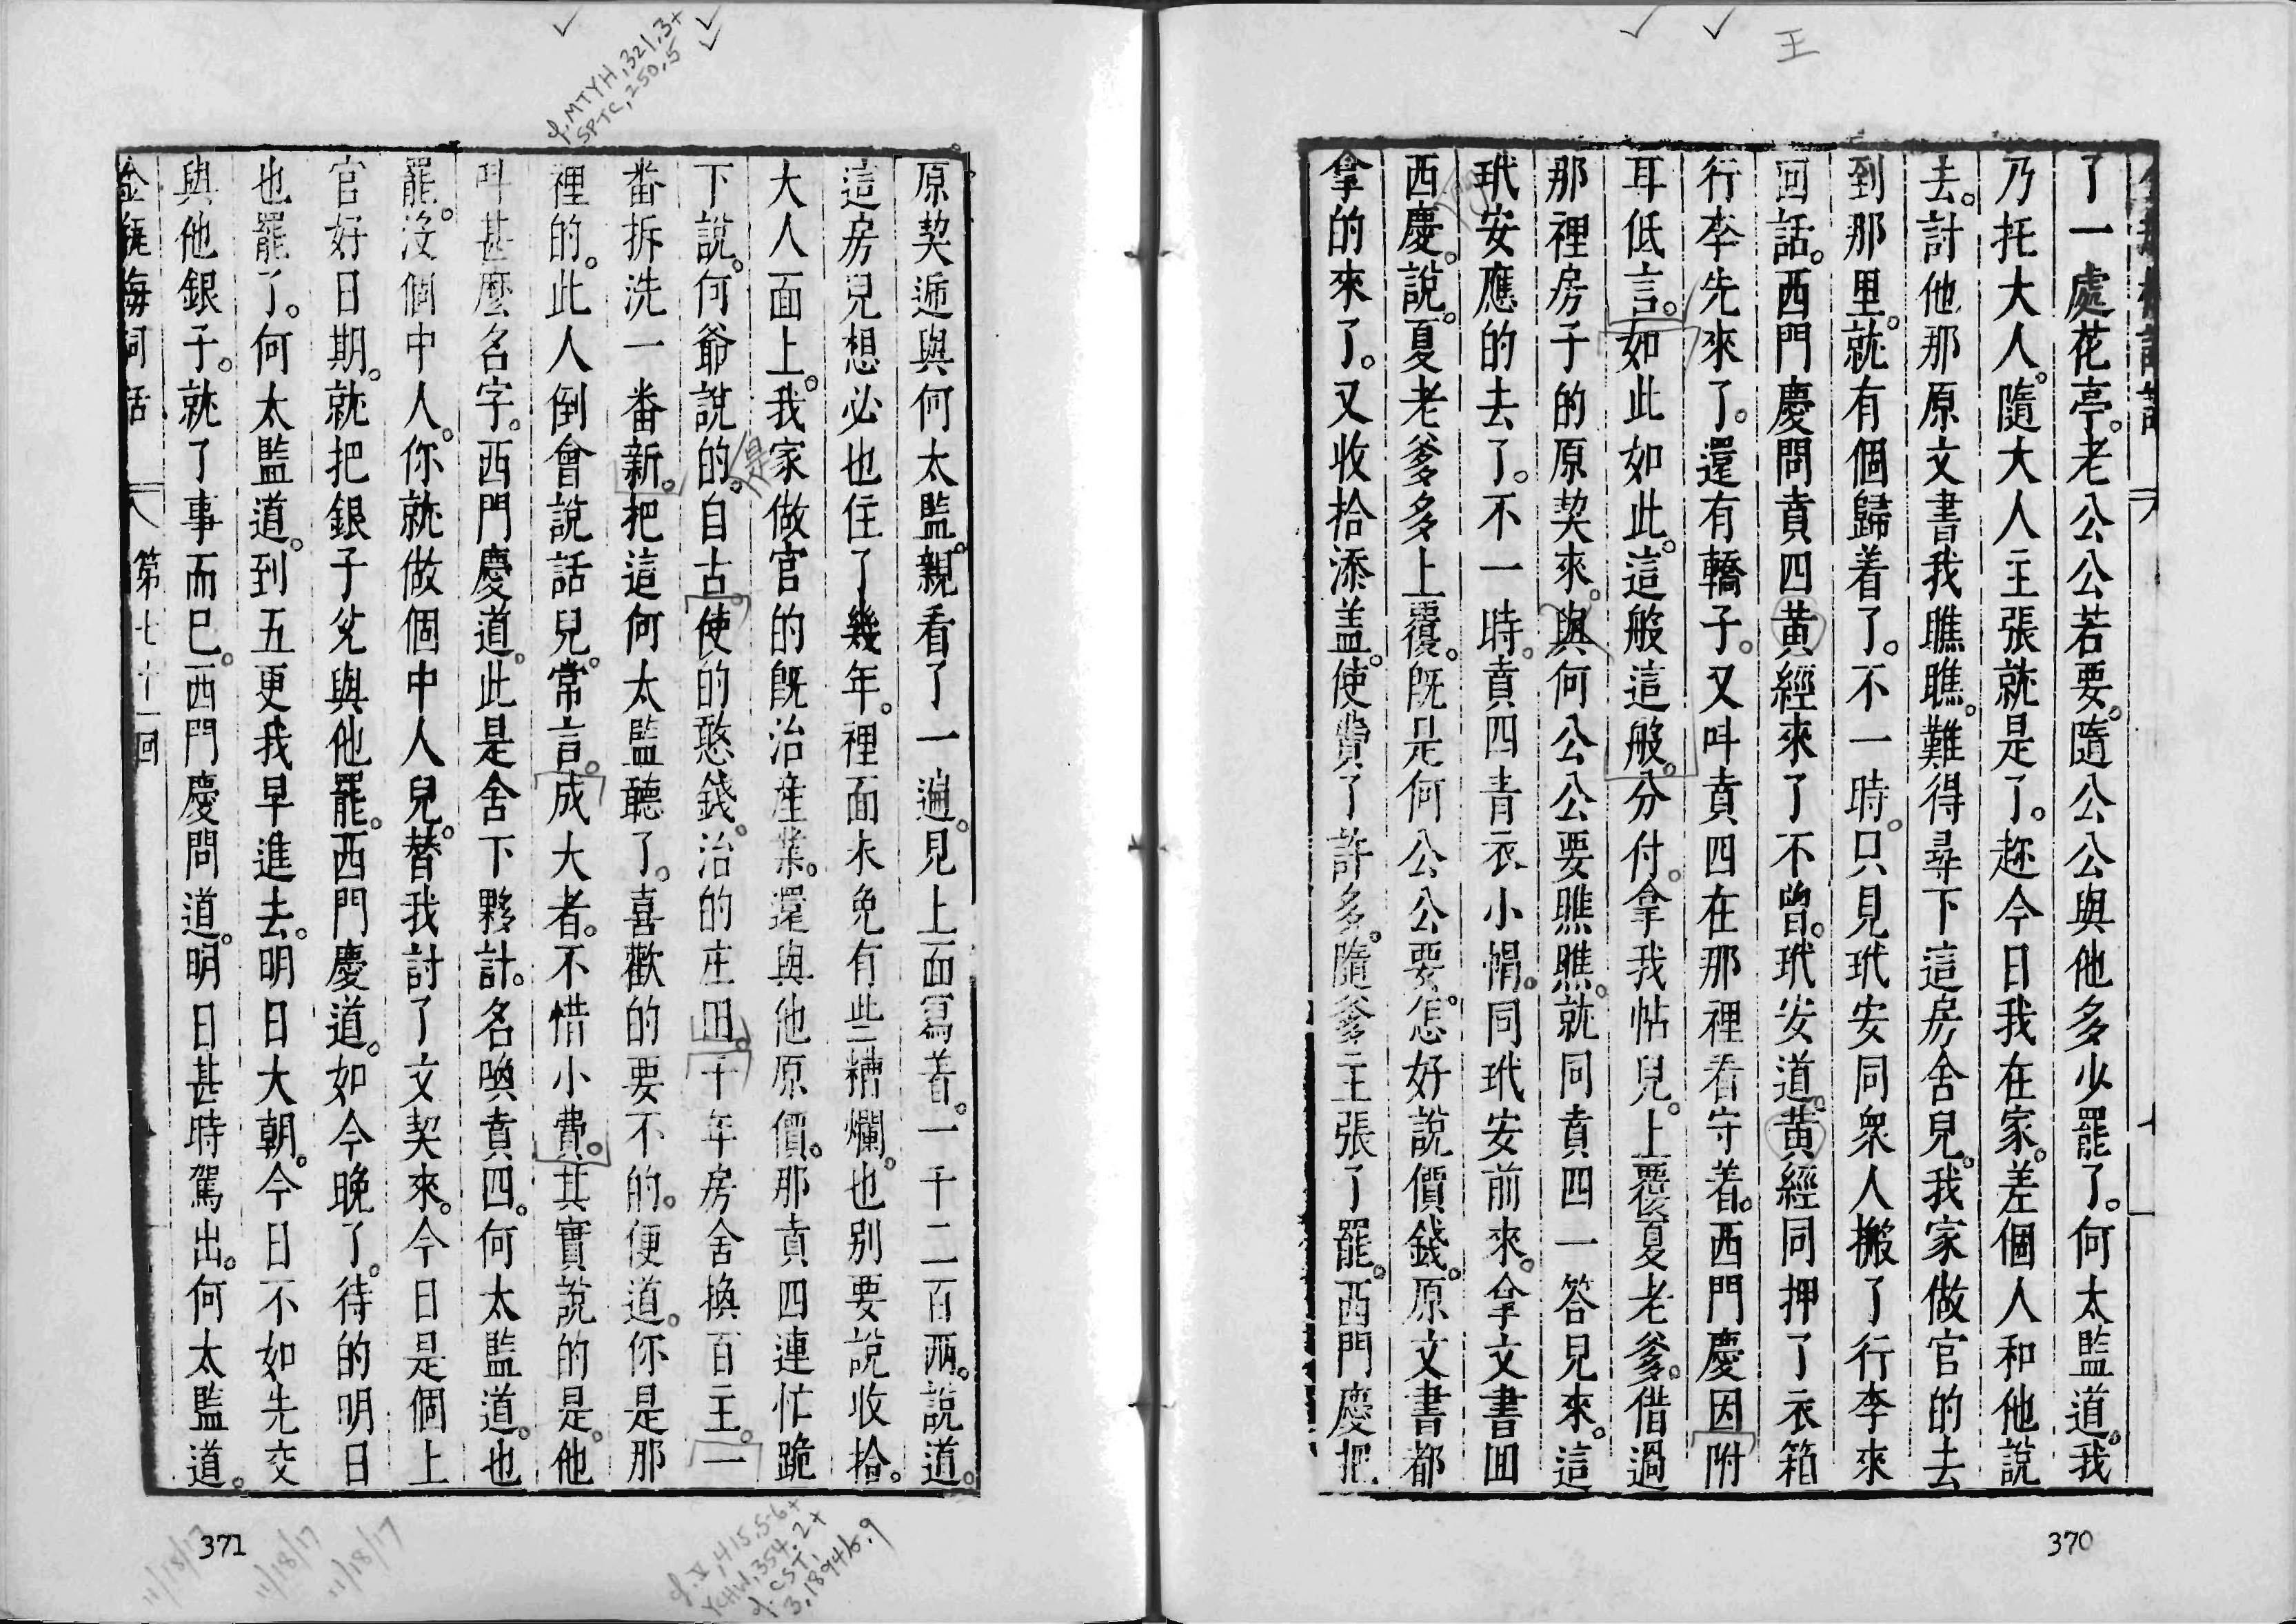 王
了一處花亭。老公公若要。隨公公與他多少罷了。何太監道。我
乃托大人。隨大人主張就是了。趂今日我在家。差個人和他說
去。討他那原文書我瞧瞧。難得尋下這房舍兒。我家做官的去
到那里。就有個歸着了。不一時。只見玳安同衆人搬了行李來
回話。西門慶問賁四黃經來了不曾。玳安道。黃經同押了衣箱
行李先來了。還有轎子。又叫賁四在那裡看守着。西門慶因附
耳低言。如此如此。這般這般。分付。拿我帖兒。上覆夏老爹。借過
那裡房子的原契來。與何公公要瞧瞧。就同賁四一答兒來。這
玳安應的去了。不一時。賁四青衣小帽。同玳安前來。拿文書回
西慶。說。夏老爹多多上覆。既是何公公要。怎好說價錢。原文書都
拿的來了。又收拾添盖。使費了許多。隨爹主張了罷。西門慶把
370
原契逓與何太監。親看了一遍。見上面寫着。一千二百兩。說道。
這房兒想必也住了幾年。裡面未免有些糟爛。也別要說收拾。
大人面上。我家做官的既治産業。還與他原價。那賁四連忙跪
下說。何爺說的。自古。使的憨錢。治的庄田。千年房舍換百主。一
是
番拆洗一番新。把這何太監聽了。喜歡的要不的。便道。你是那
裡的。此人倒會說話兒。常言。成大者。不惜小費。其實說的是。他
叫甚麼名字。西門慶道。此是舍下夥計。名喚賁四。何太監道。也
罷。沒個中人。你就做個中人兒。替我討了文契來。今日是個上
官好日期。就把銀子兊與他罷。西門慶道。如今晚了。待的明日
也罷了。何太監道。到五更我早進去。明日大朝。今日不如先交
與他銀子。就了事而已。西門慶問道。明日甚時駕出。何太監道。
金瓶梅詞話 第七十一回
371
cf. MTYH, 321, 3+
SPTC, 250, 5
cf. V, 415, 5-6+
YCHW, 354, 2+
cf. CST,
3, 1894/6, 9
11/18/17
11/18/17
11/18/17